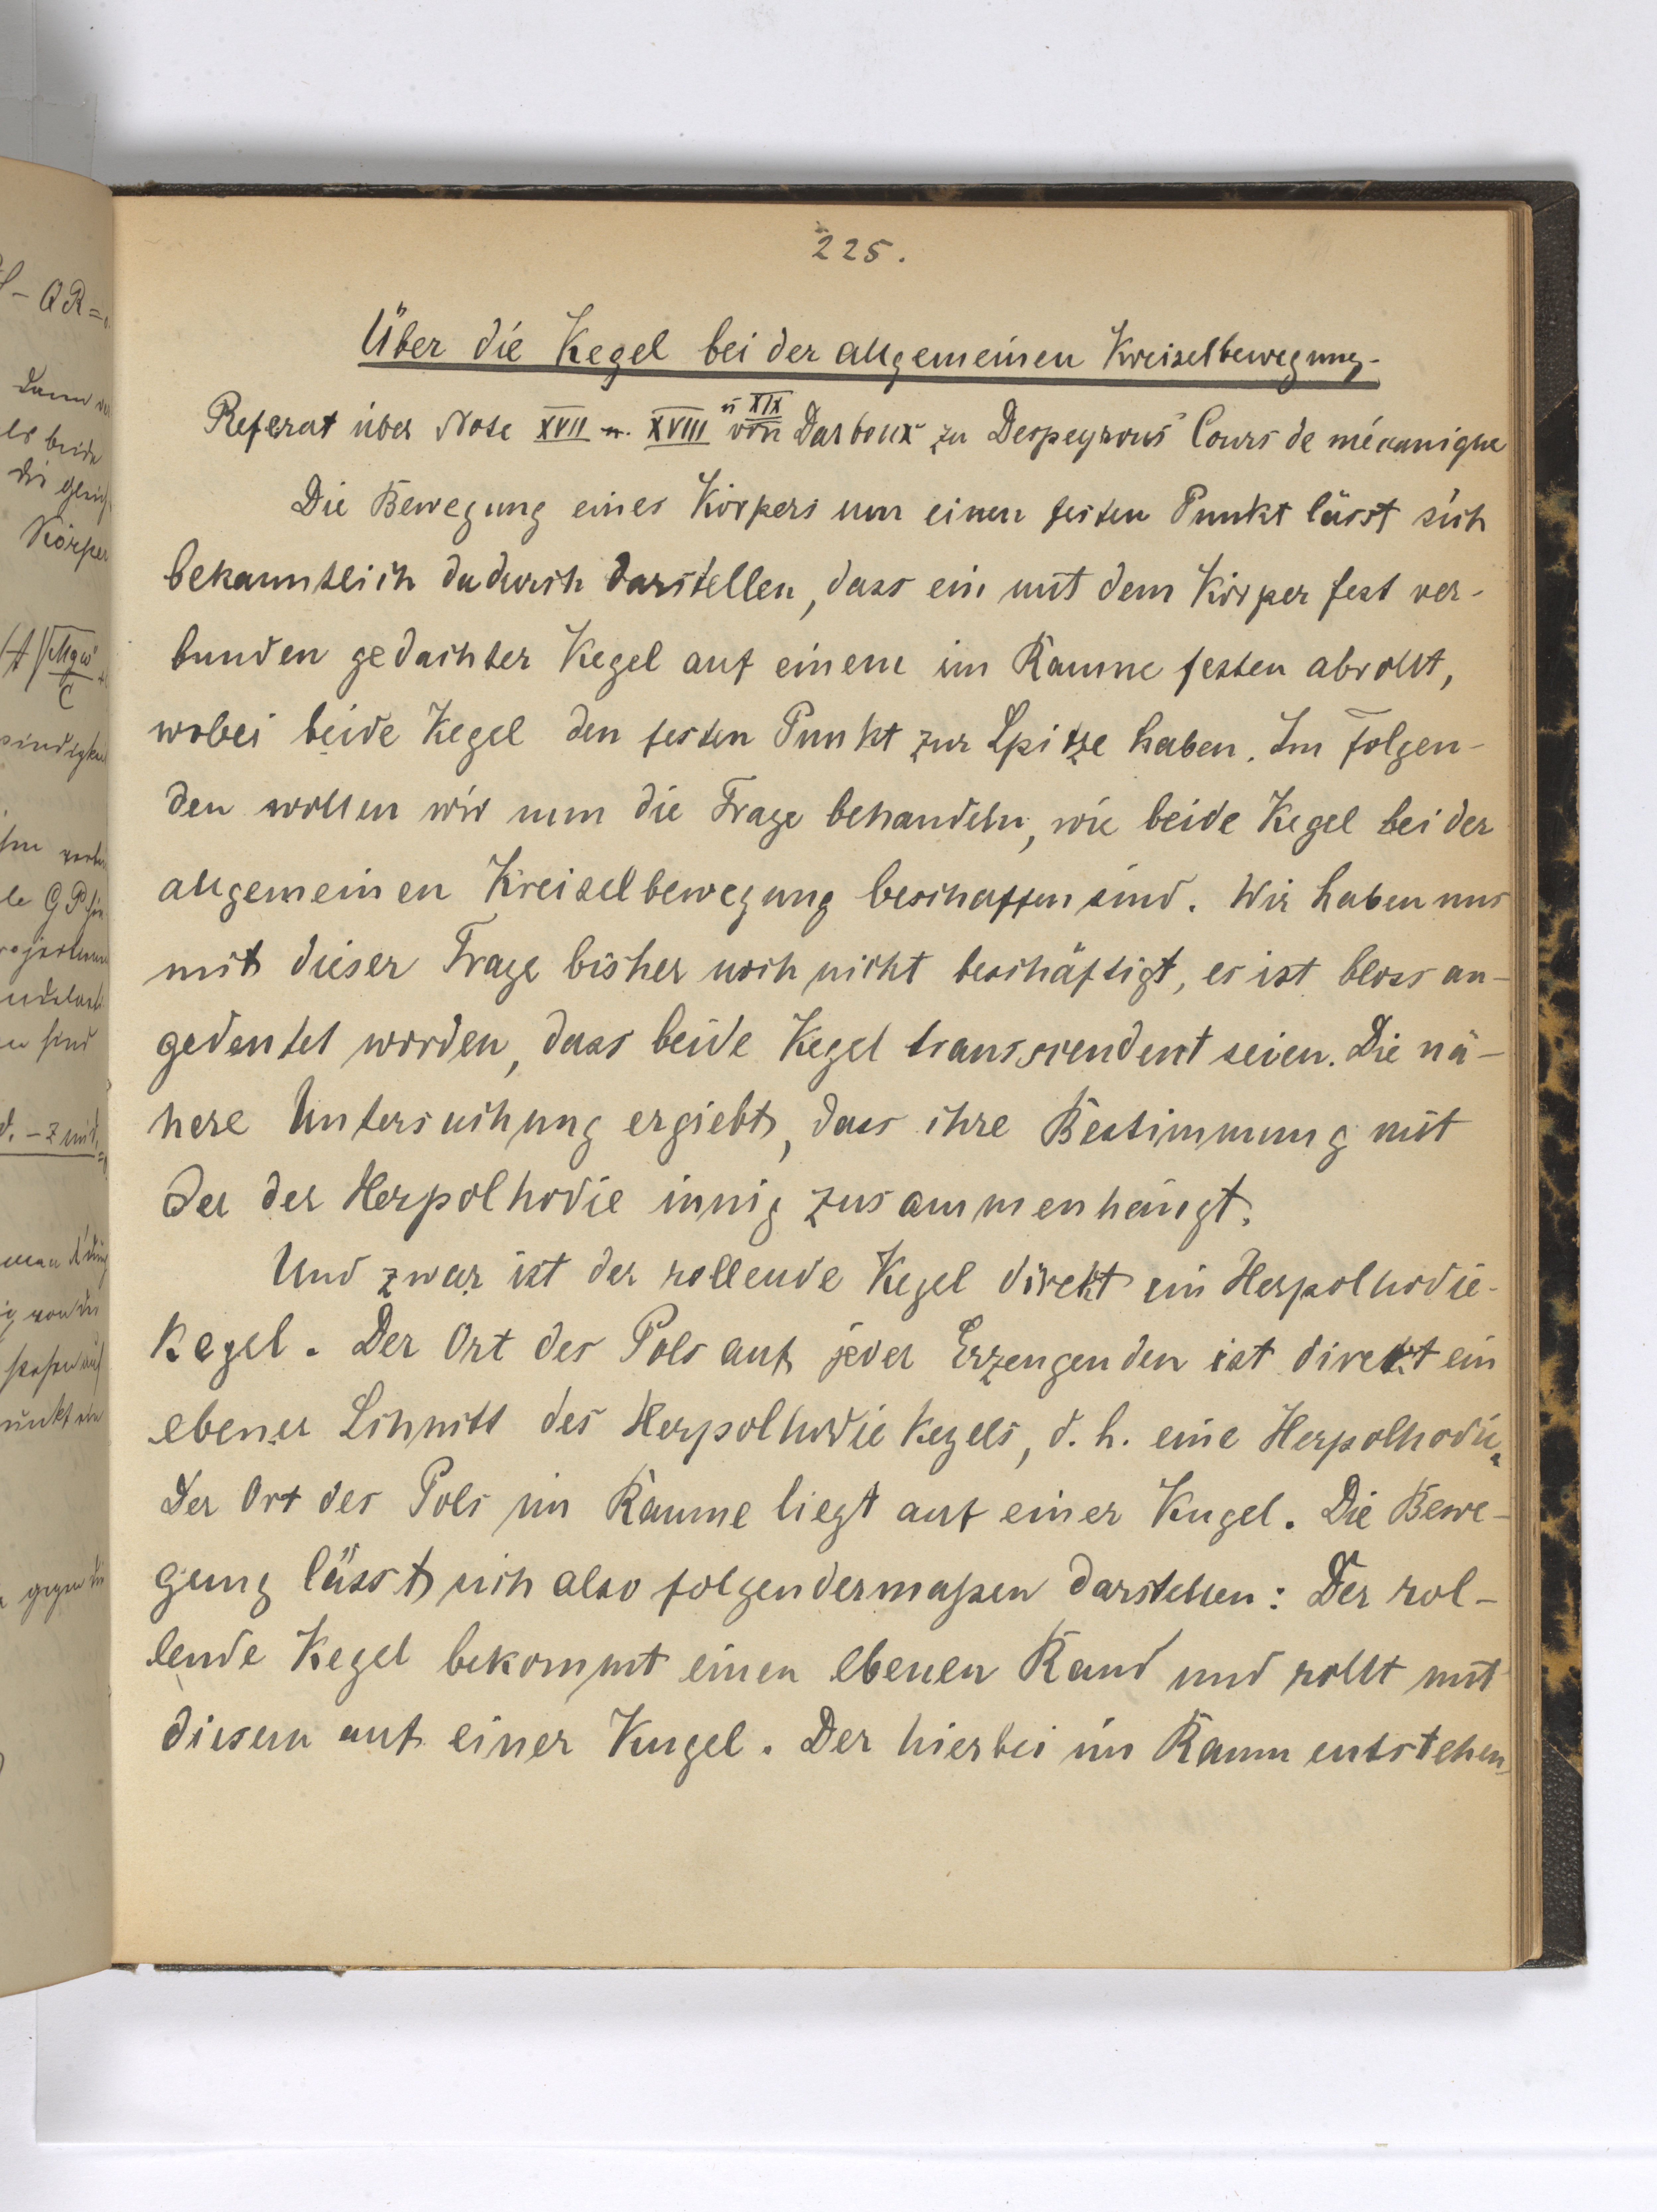 225.
Über die Kegel bei der allgemeinen Kreiselbewegung.
Referat über Note XVII u. XVIII u XIX von Darboux zu Despeyrous' Cours de mécanique
Die Bewegung eines Körpers um einen festen Punkt lässt sich
bekanntlich dadurch darstellen, dass ein mit dem Körper fest ver-
bunden gedachter Kegel auf einem im Raume festen abrollt,
wobei beide Kegel den festen Punkt zur Spitze haben. Im folgen-
den wollen wir nun die Frage behandeln, wie beide Kegel bei der
allgemeinen Kreiselbewegung beschaffen sind. Wir haben uns
mit dieser Frage bisher noch nicht beschäftigt, es ist bloss an-
gedeutet worden, dass beide Kegel transscendent seien. Die nä-
here Untersuchung ergiebt, dass ihre Bestimmung mit
der der Herpolhodie innig zusammenhängt.
Und zwar ist der rollende Kegel direkt ein Herpolhodie-
kegel. Der Ort des Pols auf jeder Erzeugenden ist direkt ein
ebener Schnitt des Herpolhodiekegels, d. h. eine Herpolhodie.
Der Ort des Pols im Raume liegt auf einer Kugel. Die Bewe-
gung lässt sich also folgendermaßen darstellen: Der rol-
lende Kegel bekommt einen ebenen Rand und rollt mit
diesem auf einer Kugel. Der hierbei im Raum entstehen-
- QR =
Dann
es beide
die
Körper
C
sind
gegen